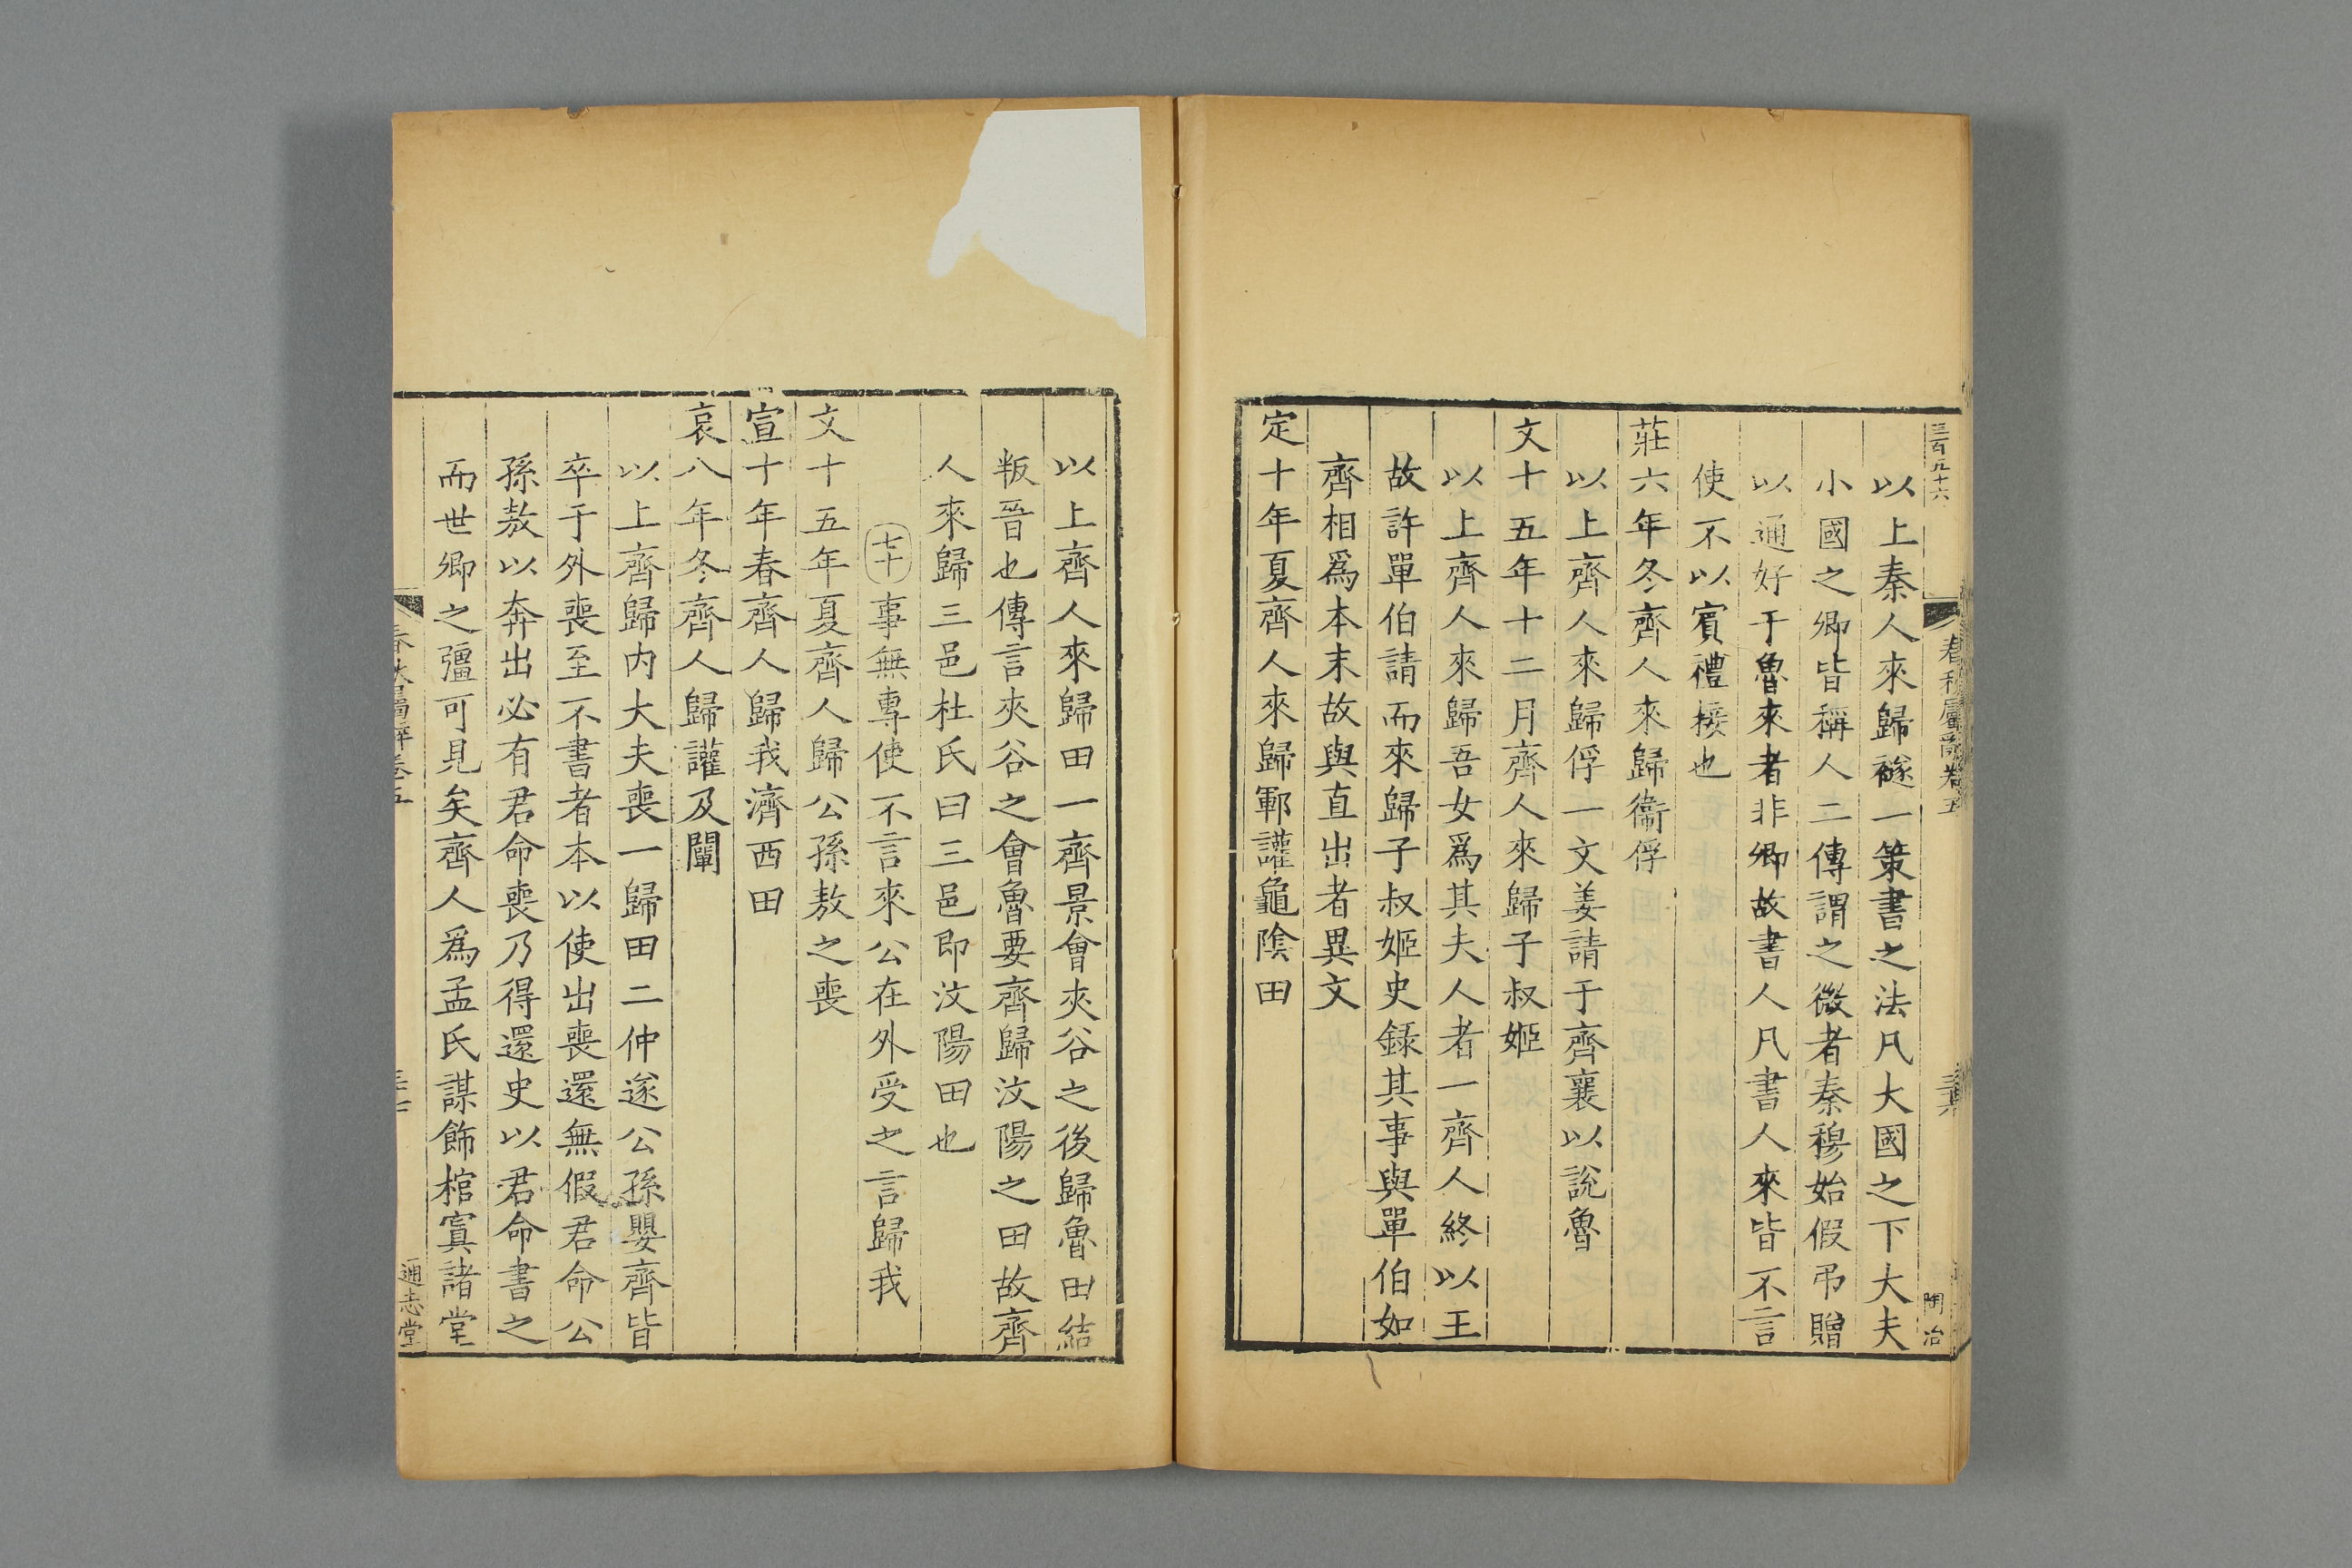 三百九十六
春秋屬辭卷五
三六
陶冶
以上秦人來歸襚一策書之法凡大國之下大夫
小國之卿皆稱人二傳謂之微者秦穆始假弔贈
以通好于魯來者非卿故書人凡書人來皆不言
使不以賓禮接也
莊六年冬齊人來歸衞俘
以上齊人來歸俘一文姜請于齊襄以說魯
文十五年十二月齊人來歸子叔姬
以上齊人來歸吾女爲其夫人者一齊人終以王
故許單伯請而來歸子叔姬史録其事與單伯如
齊相爲本末故與直出者異文
定十年夏齊人來歸鄆讙龜陰田
以上齊人來歸田一齊景會夾谷之後歸魯田結
叛晉也傳言夾谷之會魯要齊歸汶陽之田故齊
人來歸三邑杜氏曰三邑即汶陽田也
七十事無專使不言來公在外受之言歸我
文十五年夏齊人歸公孫敖之喪
宣十年春齊人歸我濟西田
哀八年冬齊人歸讙及闡
以上齊歸内大夫喪一歸田二仲遂公孫嬰齊皆
卒于外喪至不書者本以使出喪還無假君命公
孫敖以奔出必有君命喪乃得還史以君命書之
而世卿之彊可見矣齊人爲孟氏謀飾棺寘諸堂
春秋屬辭卷五
三七
通志堂